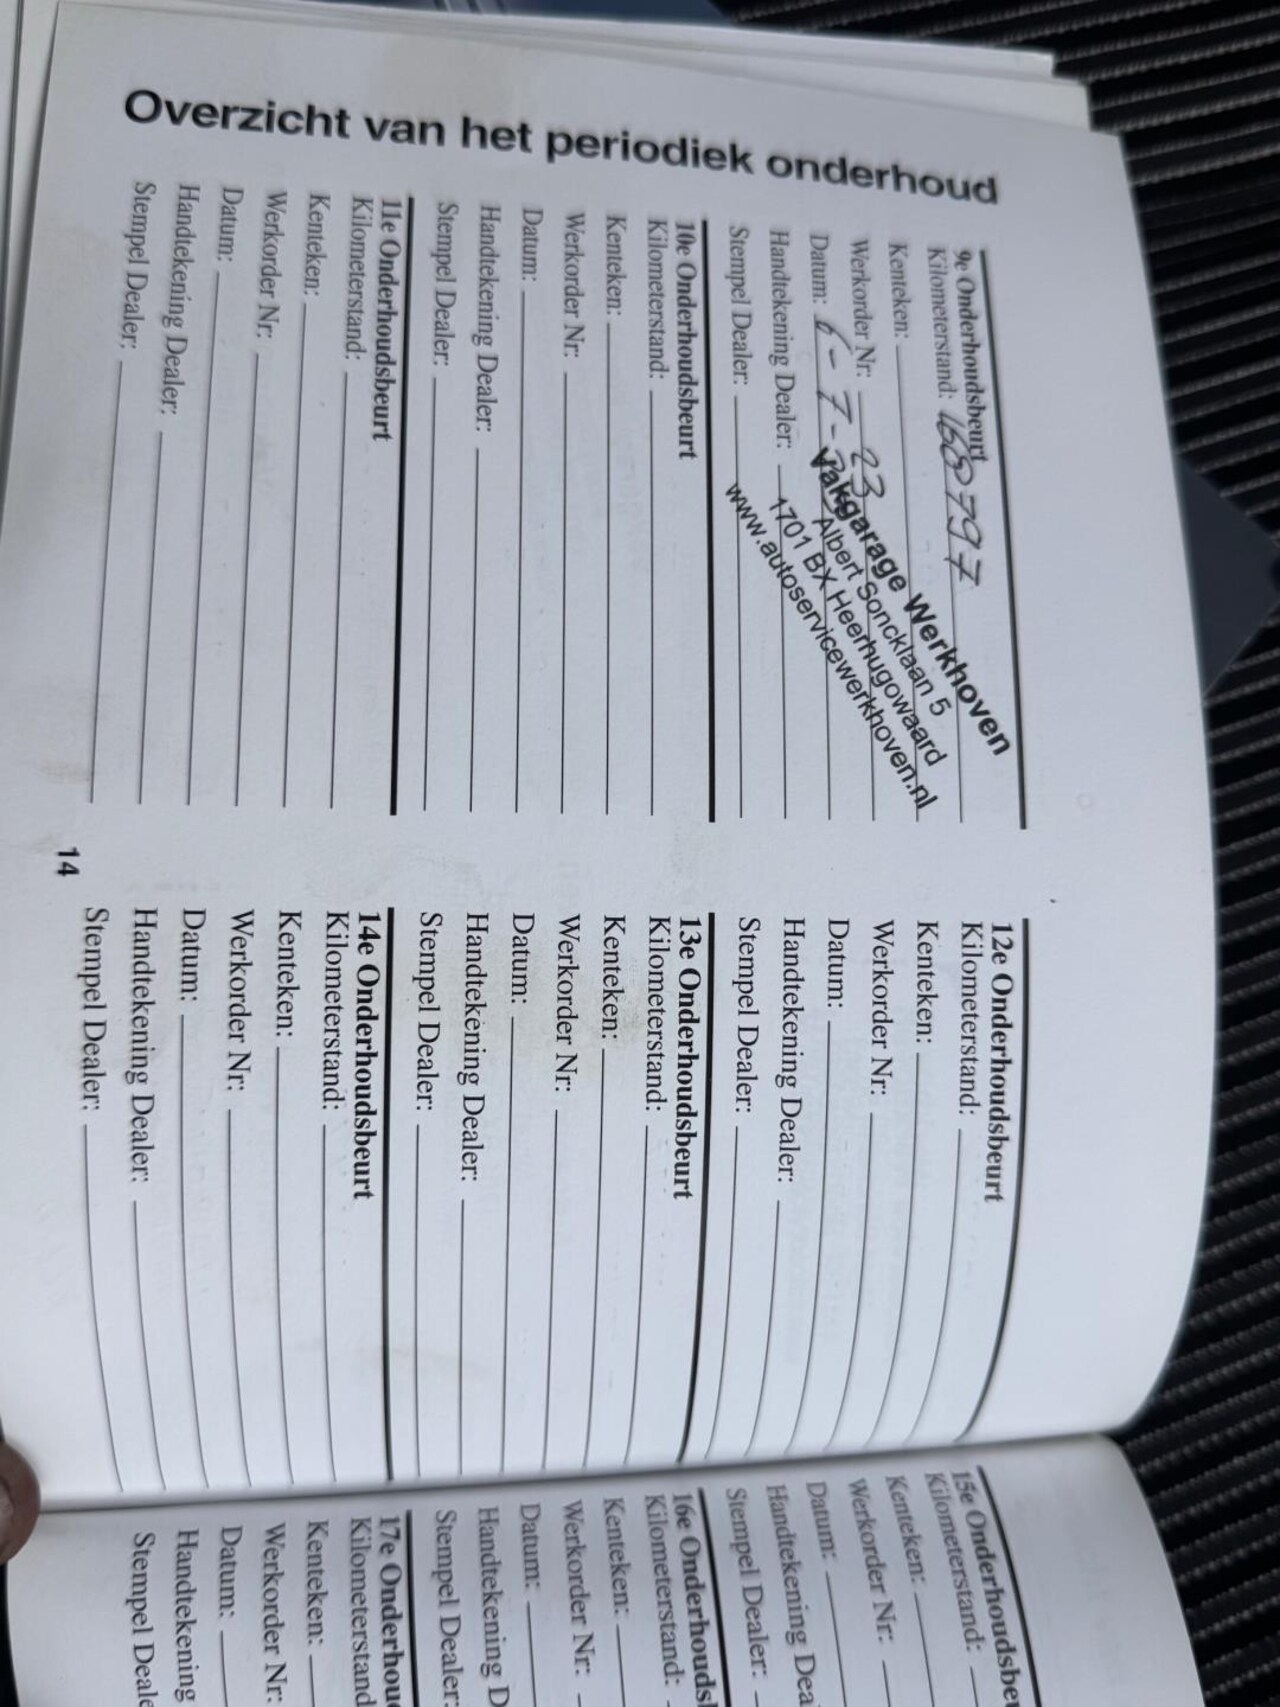 Overzicht van het periodiek onderhoud
9e Onderhoudsbeurt
Kilometerstand: 168797
Kenteken:
Werkorder Nr:
Datum: 6-7-23
Handtekening Dealer:
Stempel Dealer:
Vakgarage Werkhoven
Albert Soncklaan 5
1701 BX Heerhugowaard
www.autoservicewerkhoven.nl
10e Onderhoudsbeurt
Kilometerstand:
Kenteken:
Werkorder Nr:
Datum:
Handtekening Dealer:
Stempel Dealer:
11e Onderhoudsbeurt
Kilometerstand:
Kenteken:
Werkorder Nr:
Datum:
Handtekening Dealer:
Stempel Dealer:
12e Onderhoudsbeurt
Kilometerstand:
Kenteken:
Werkorder Nr:
Datum:
Handtekening Dealer:
Stempel Dealer:
13e Onderhoudsbeurt
Kilometerstand:
Kenteken:
Werkorder Nr:
Datum:
Handtekening Dealer:
Stempel Dealer:
14e Onderhoudsbeurt
Kilometerstand:
Kenteken:
Werkorder Nr:
Datum:
Handtekening Dealer:
Stempel Dealer:
14
15e Onderhoudsbeu
Kilometerstand:
Kenteken:
Werkorder Nr:
Datum:
Handtekening Dea
Stempel Dealer:
16e Onderhouds
Kilometerstand:
Kenteken:
Werkorder Nr:
Datum:
Handtekening D
Stempel Dealer:
17e Onderhou
Kilometerstand
Kenteken:
Werkorder Nr:
Datum:
Handtekening
Stempel Deale